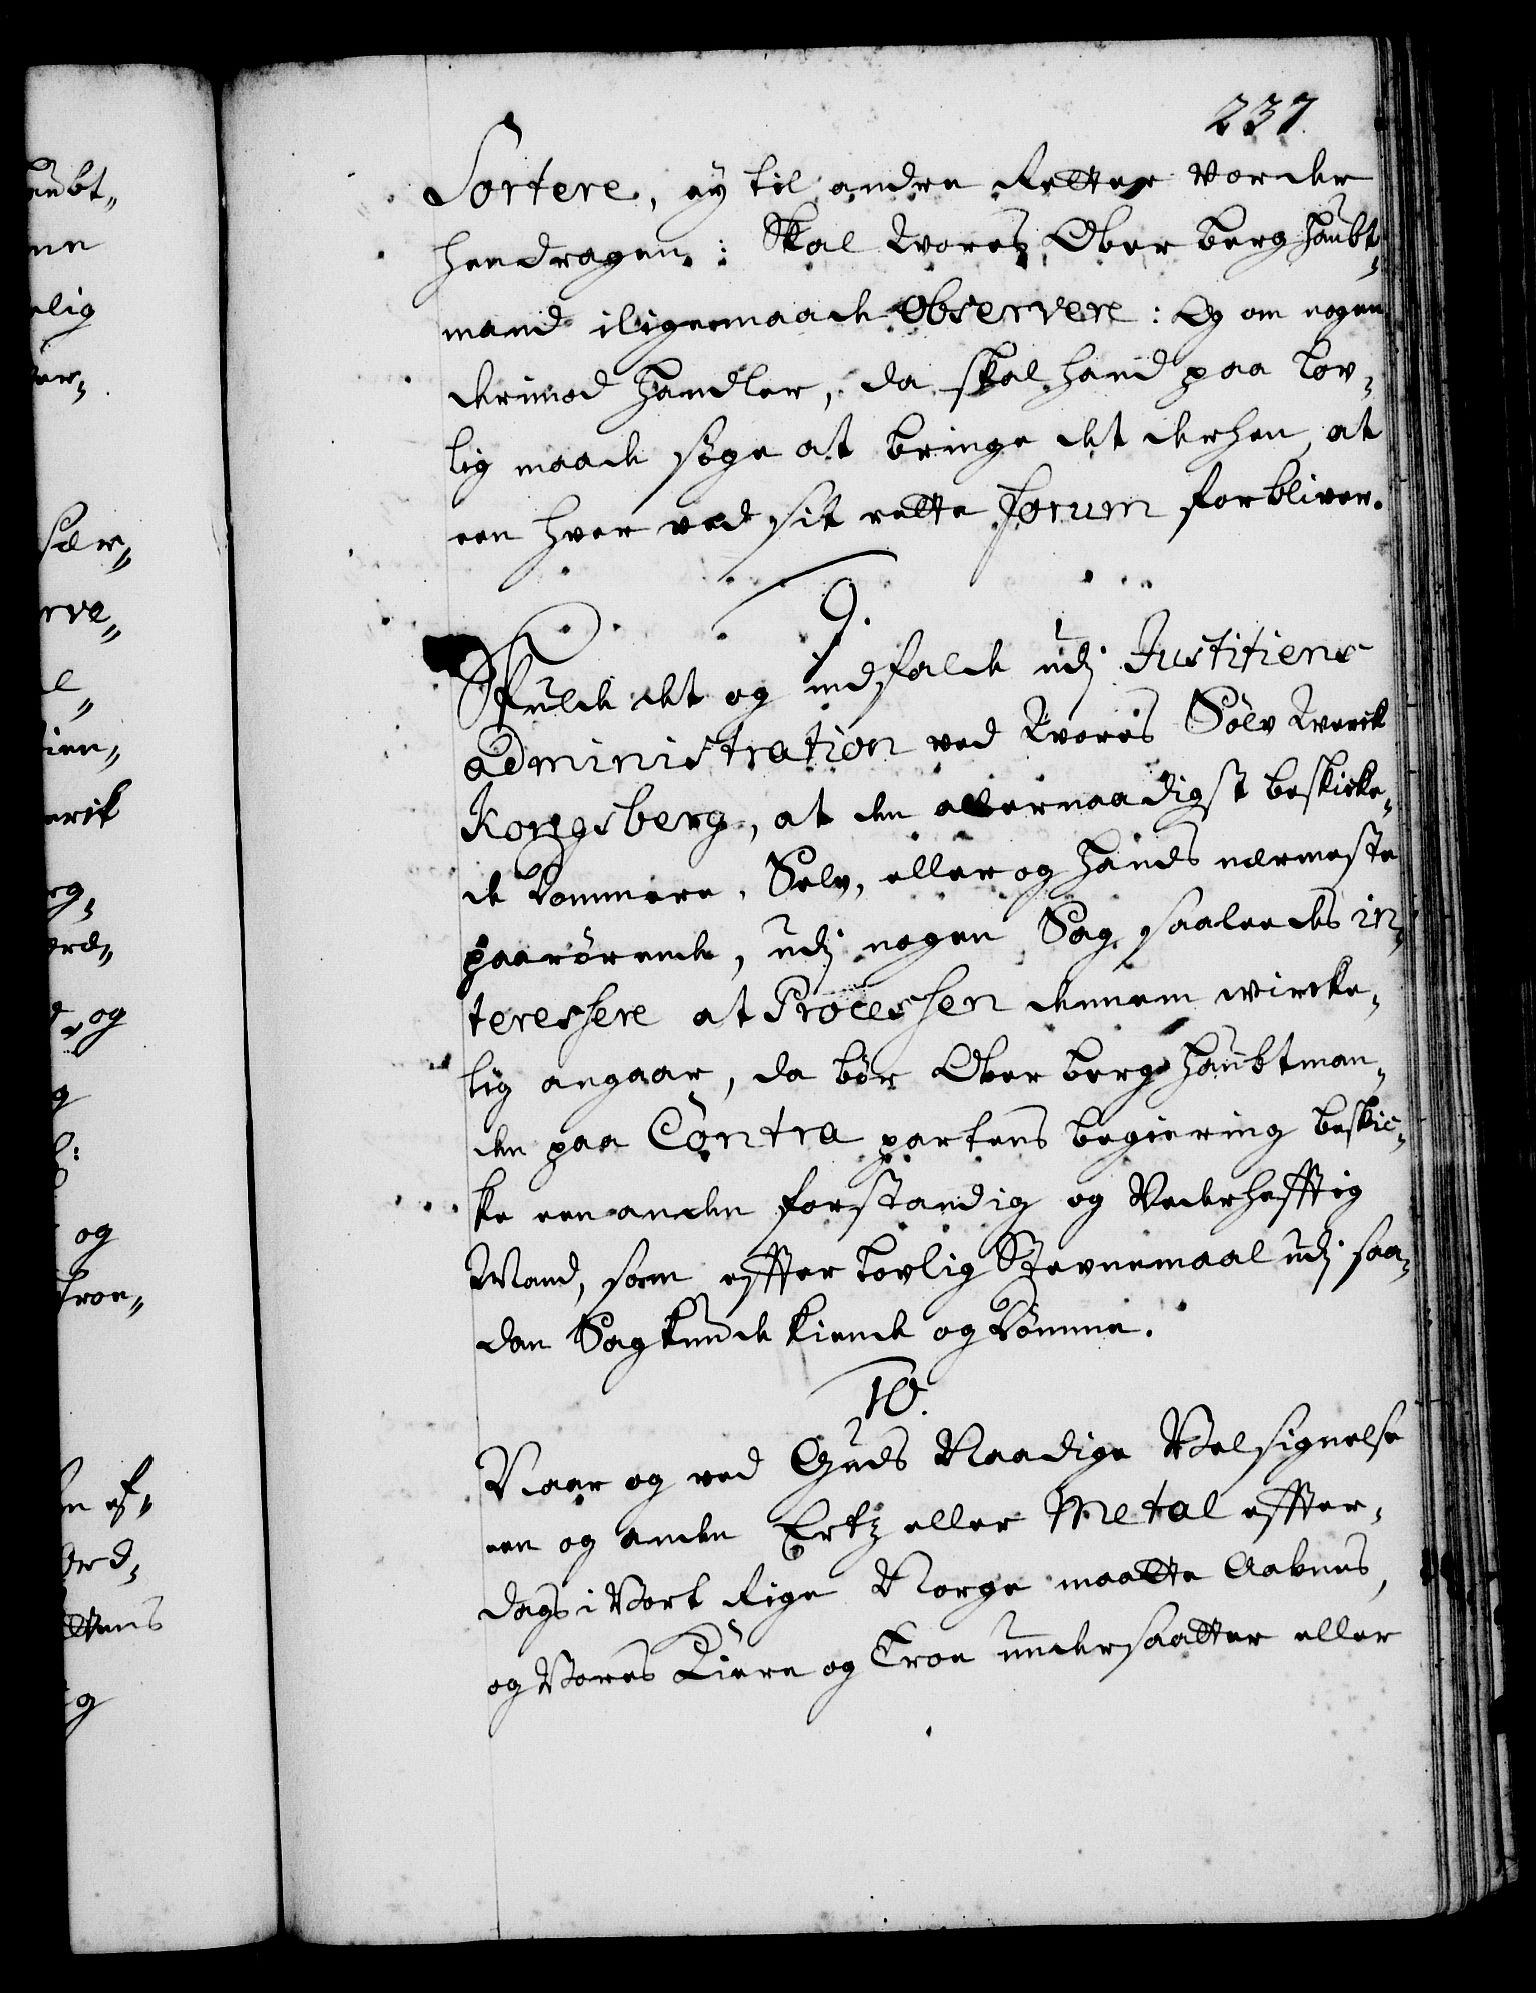 237.
Sortere, ey til andre Retter vorder
hendragen: Skal Vores Ober berg haubt-
mand iligemaade Observere: Og om nogen
derimod handler, da skal hand paa lov-
lig maade søge at bringe det derhen, at
een hver ved sit rette forum forbliver.
9.
Skulde det og indfalde udj Justitiens
administration ved Vores Sølv Verck
Kongsberg, at den allernaadigst beskicke-
de Dommere, Selv, eller og hands nærmeste
paarørende, udj nogen Sag saaledes in-
teressere at Processen dennem wircke-
lig angaar, da bør Ober berg haubtman-
den paa Contra partens begiering beskic-
ke een anden forstandig og Vederhefftig
Mand, som effter lovlig Stevnemaal udj saa-
dan Sag kunde kiende og dømme.
10.
Naar og ved Guds Naadige Velsignelse
een og anden Ertz eller Metal effter-
dags i Vort Rige Norge maatte Aabnes,
og Vores Kiere og Troe undersaatter eller
aubt-
elig
rve-
erik
og
og
troe-